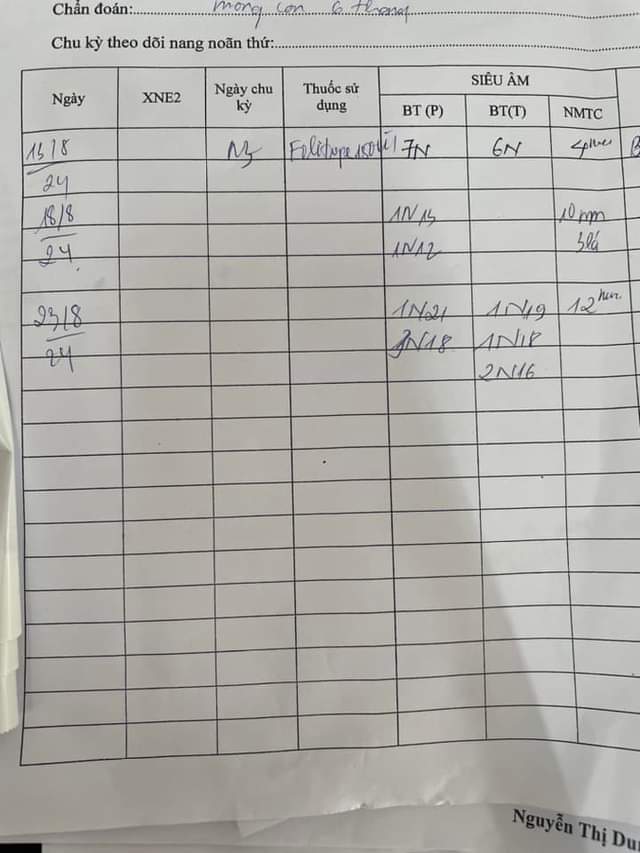 Chẩn đoán: mong con 6 tháng
Chu kỳ theo dõi nang noãn thứ:
Ngày XNE2 Ngày chu kỳ Thuốc sử dụng SIÊU ÂM
BT (P) BT(T) NMTC
13/8 N3 7N 6N
24
18/8 1N13 10 mm
24 1N12 3 lá
23/8 1N21 1N19 12 mm
24 N18 1N18
2N16
Nguyễn Thị Du